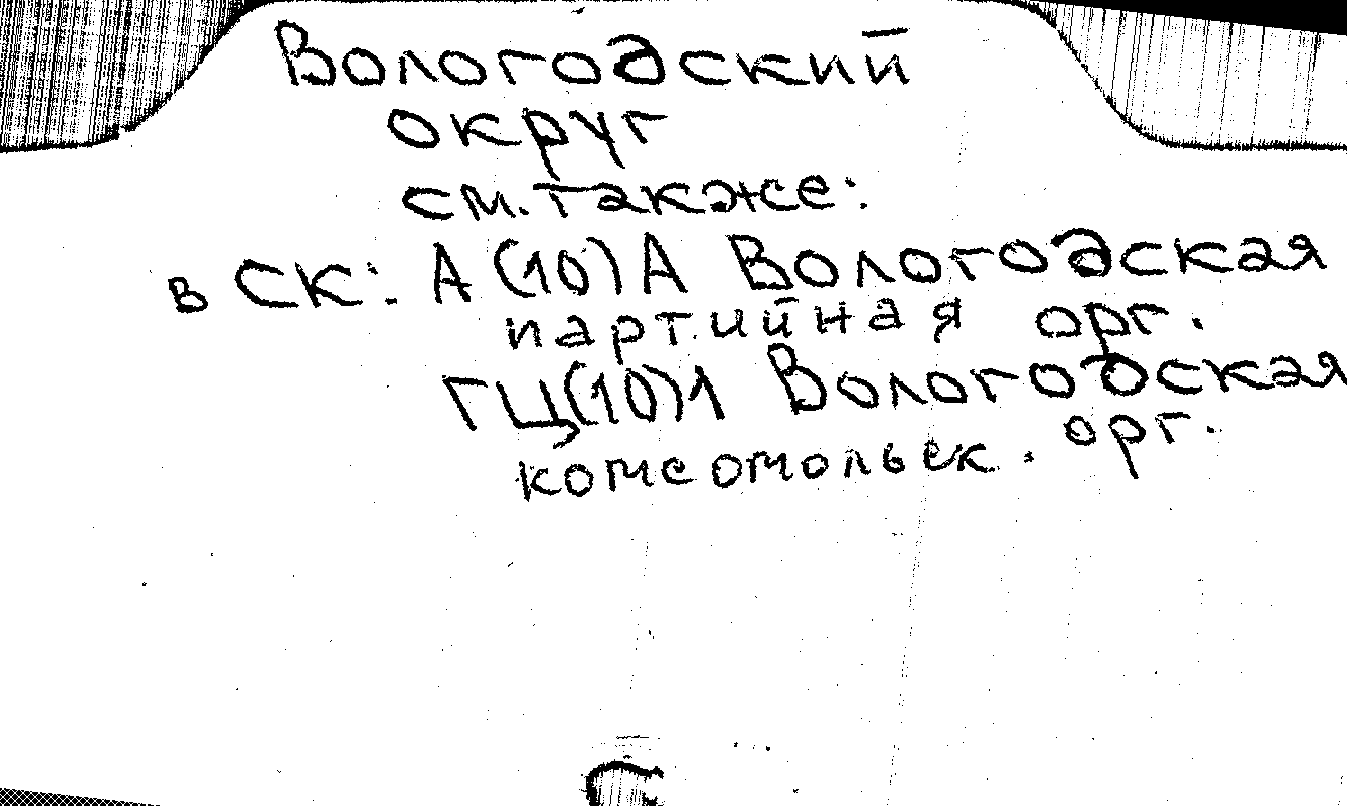 Вологодский
округ
см. также:
в СК: А(10)А Вологодская
партийная орг.
ГЦ(10)1 Вологодская
комсомольск. орг.